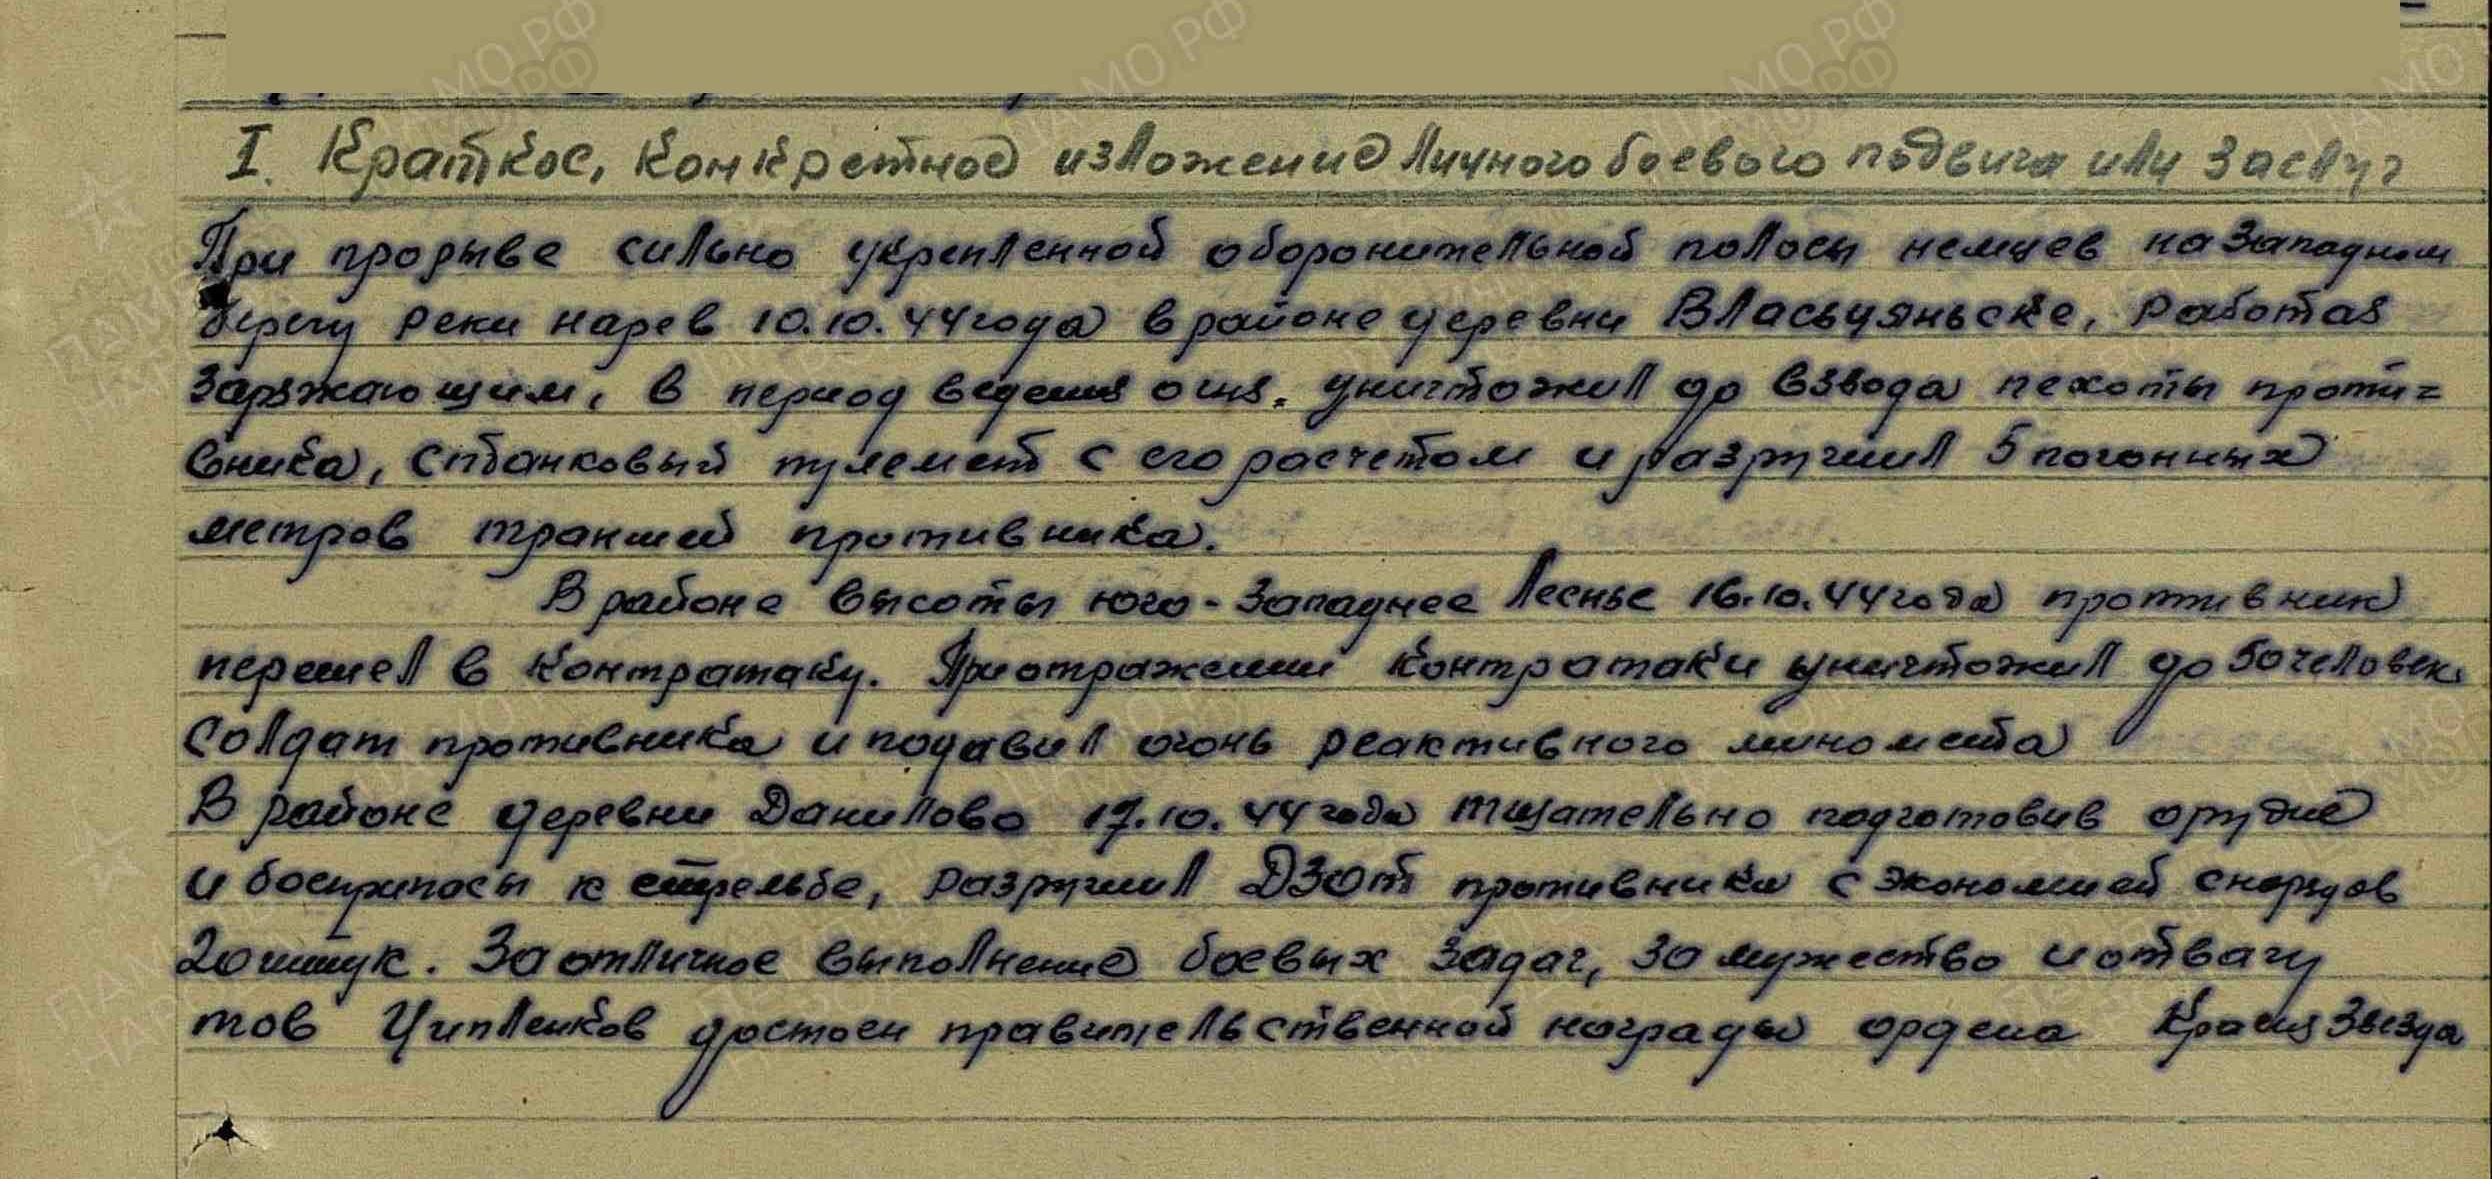 I. Краткое, конкретное изложение личного боевого подвига или заслуг
При прорыве сильно укрепленной оборонительной полосы немцев на западном
берегу реки нарев 10.10.44 года в районе деревни Власьцяньске, работая
заряжающим, в период ведения огня. уничтожил до взвода пехоты проти=
вника, станковый пулемет с его расчетом и разрушил 5 погонных
метров траншей противника.
В районе высоты юго-западнее Леснье 16.10.44 года противник
перешел в контратаку. При отражении контратаки уничтожил до 50 человек
солдат противника и подавил огонь реактивного миномета
В районе деревни Данилово 17.10.44 года тщательно подготовив орудие
и боеприпасы к стрельбе, разрушил ДЗОТ противника с экономией снарядов
20 штук. За отличное выполнение боевых задач, за мужество и отвагу
тов Ципленков достоен правительственной награды ордена Красня Звезда